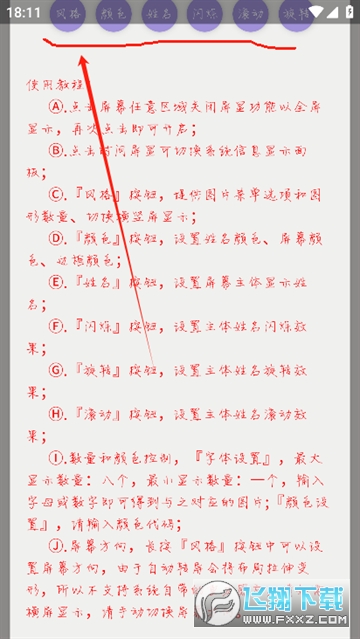 18:11
风格 颜色 姓名 闪烁 滚动 旋转
使用教程
Ⓐ.点击屏幕任意区域关闭屏显功能以全屏
显示，再次点击即可开启；
Ⓑ.点击时间屏显可切换系统信息显示面
板；
Ⓒ.『风格』按钮，提供图片菜单选项和图
形数量、切换横竖屏显示；
Ⓓ.『颜色』按钮，设置姓名颜色、屏幕颜
色、边框颜色；
Ⓔ.『姓名』按钮，设置屏幕主体显示姓
名；
Ⓕ.『闪烁』按钮，设置主体姓名闪烁效
果；
Ⓖ.『旋转』按钮，设置主体姓名旋转效
果；
Ⓗ.『滚动』按钮，设置主体姓名滚动效
果；
Ⓘ.数量和颜色控制，『字体设置』，最大
显示数量：八个，最小显示数量：一个，输入
字母或数字即可得到与之对应的图片；『颜色设
置』，请输入颜色代码；
Ⓙ.屏幕方向，长按『风格』按钮中可以设
置屏幕方向，由于自动转屏会将布局拉伸变
形，所以不支持系统自带
横屏显示，请手动切换屏
飞翔下载
WWW.FXXZ.COM